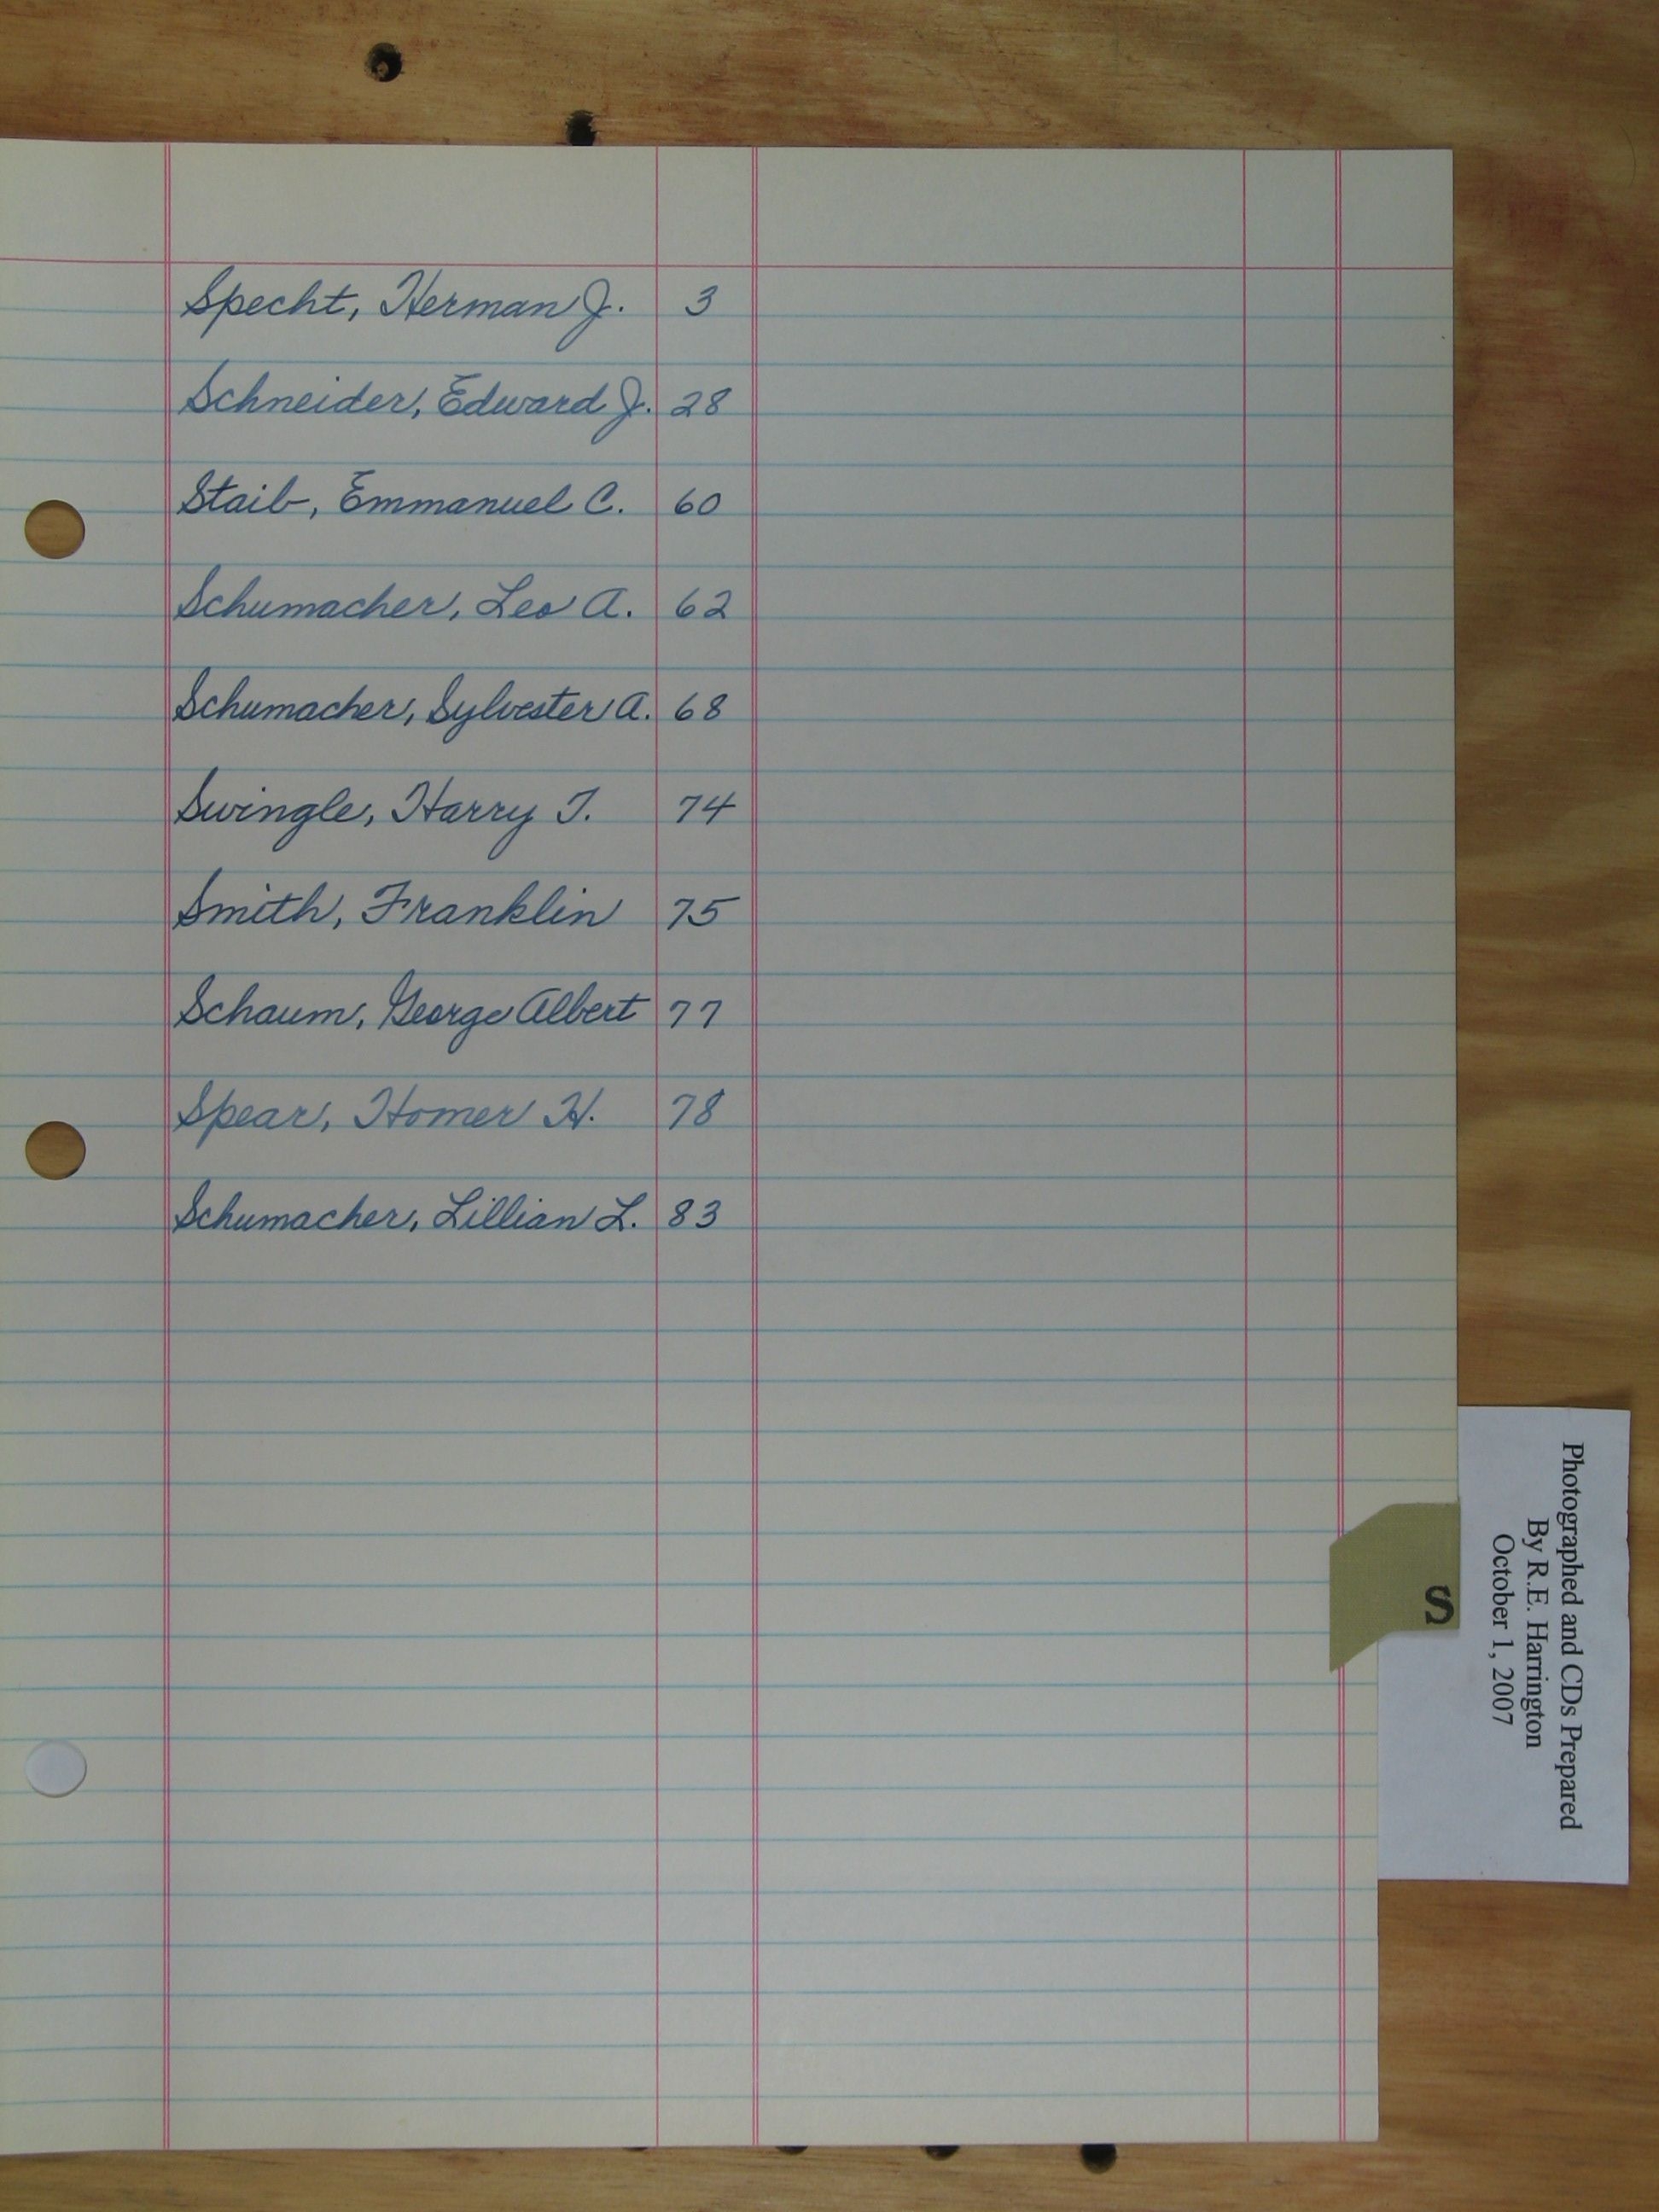 Specht, Herman J. 3
Schneider, Edward J. 28
Staib, Emmanuel C. 60
Schumacher, Leo A. 62
Schumacher, Sylvester A. 68
Swingle, Harry T. 74
Smith, Franklin 75
Schaum, George Albert 77
Spear, Homer H. 78
Schumacher, Lillian L. 83
S
Photographed and CDs Prepared
By R.E. Harrington
October 1, 2007